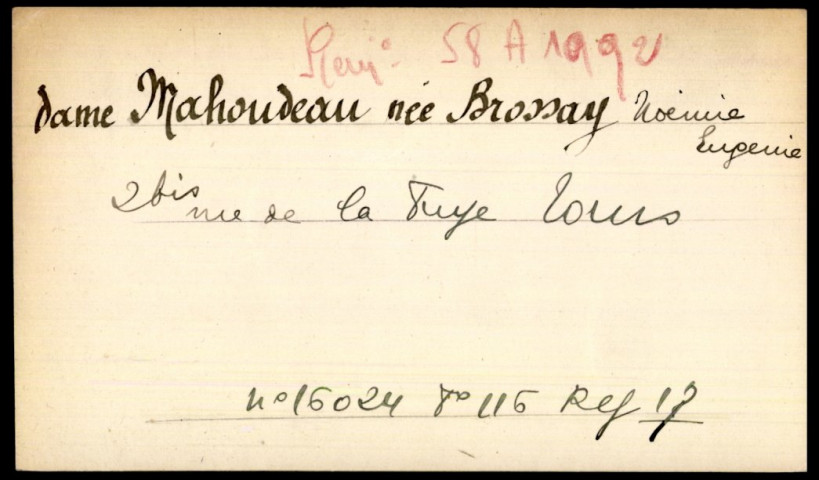 58 A 1992
dame Mahoudeau née Brossay Noémie
Eugenie
2bis rue de la Fuye Tours
n° 16024 F° 116 Reg 17